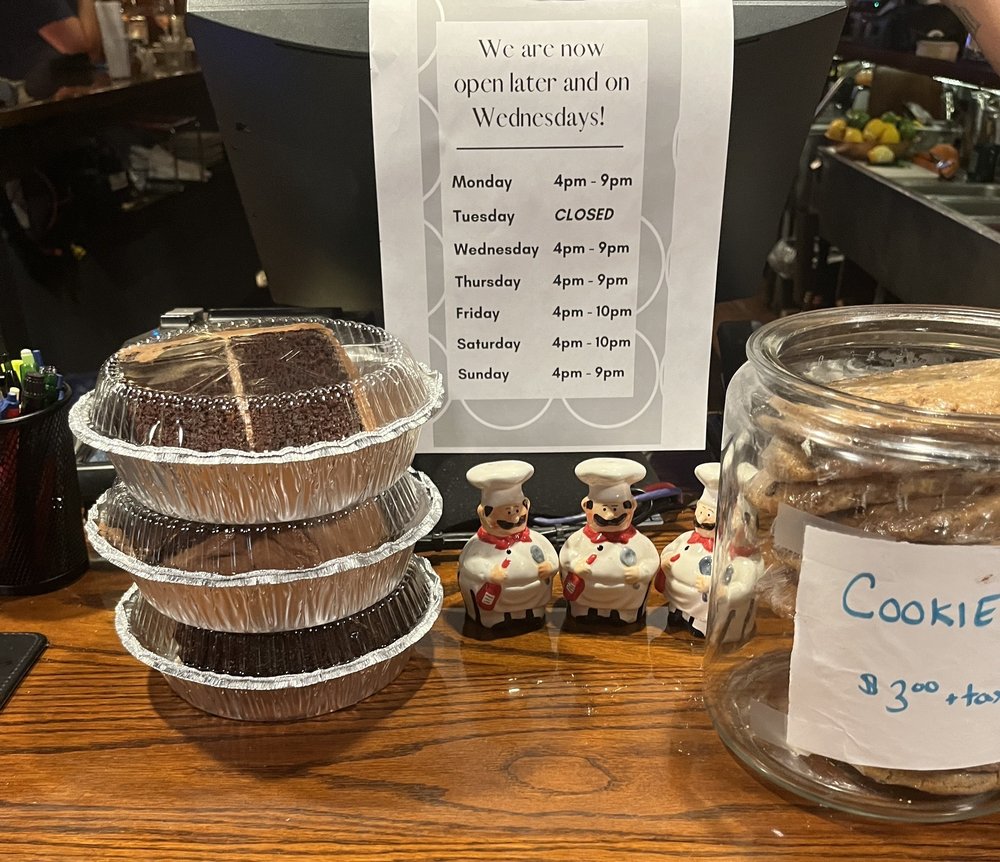 We are now
open later and on
Wednesdays!
Monday 4pm - 9pm
Tuesday CLOSED
Wednesday 4pm - 9pm
Thursday 4pm - 9pm
Friday 4pm - 10pm
Saturday 4pm - 10pm
Sunday 4pm - 9pm
COOKIE
$3.00 + tax